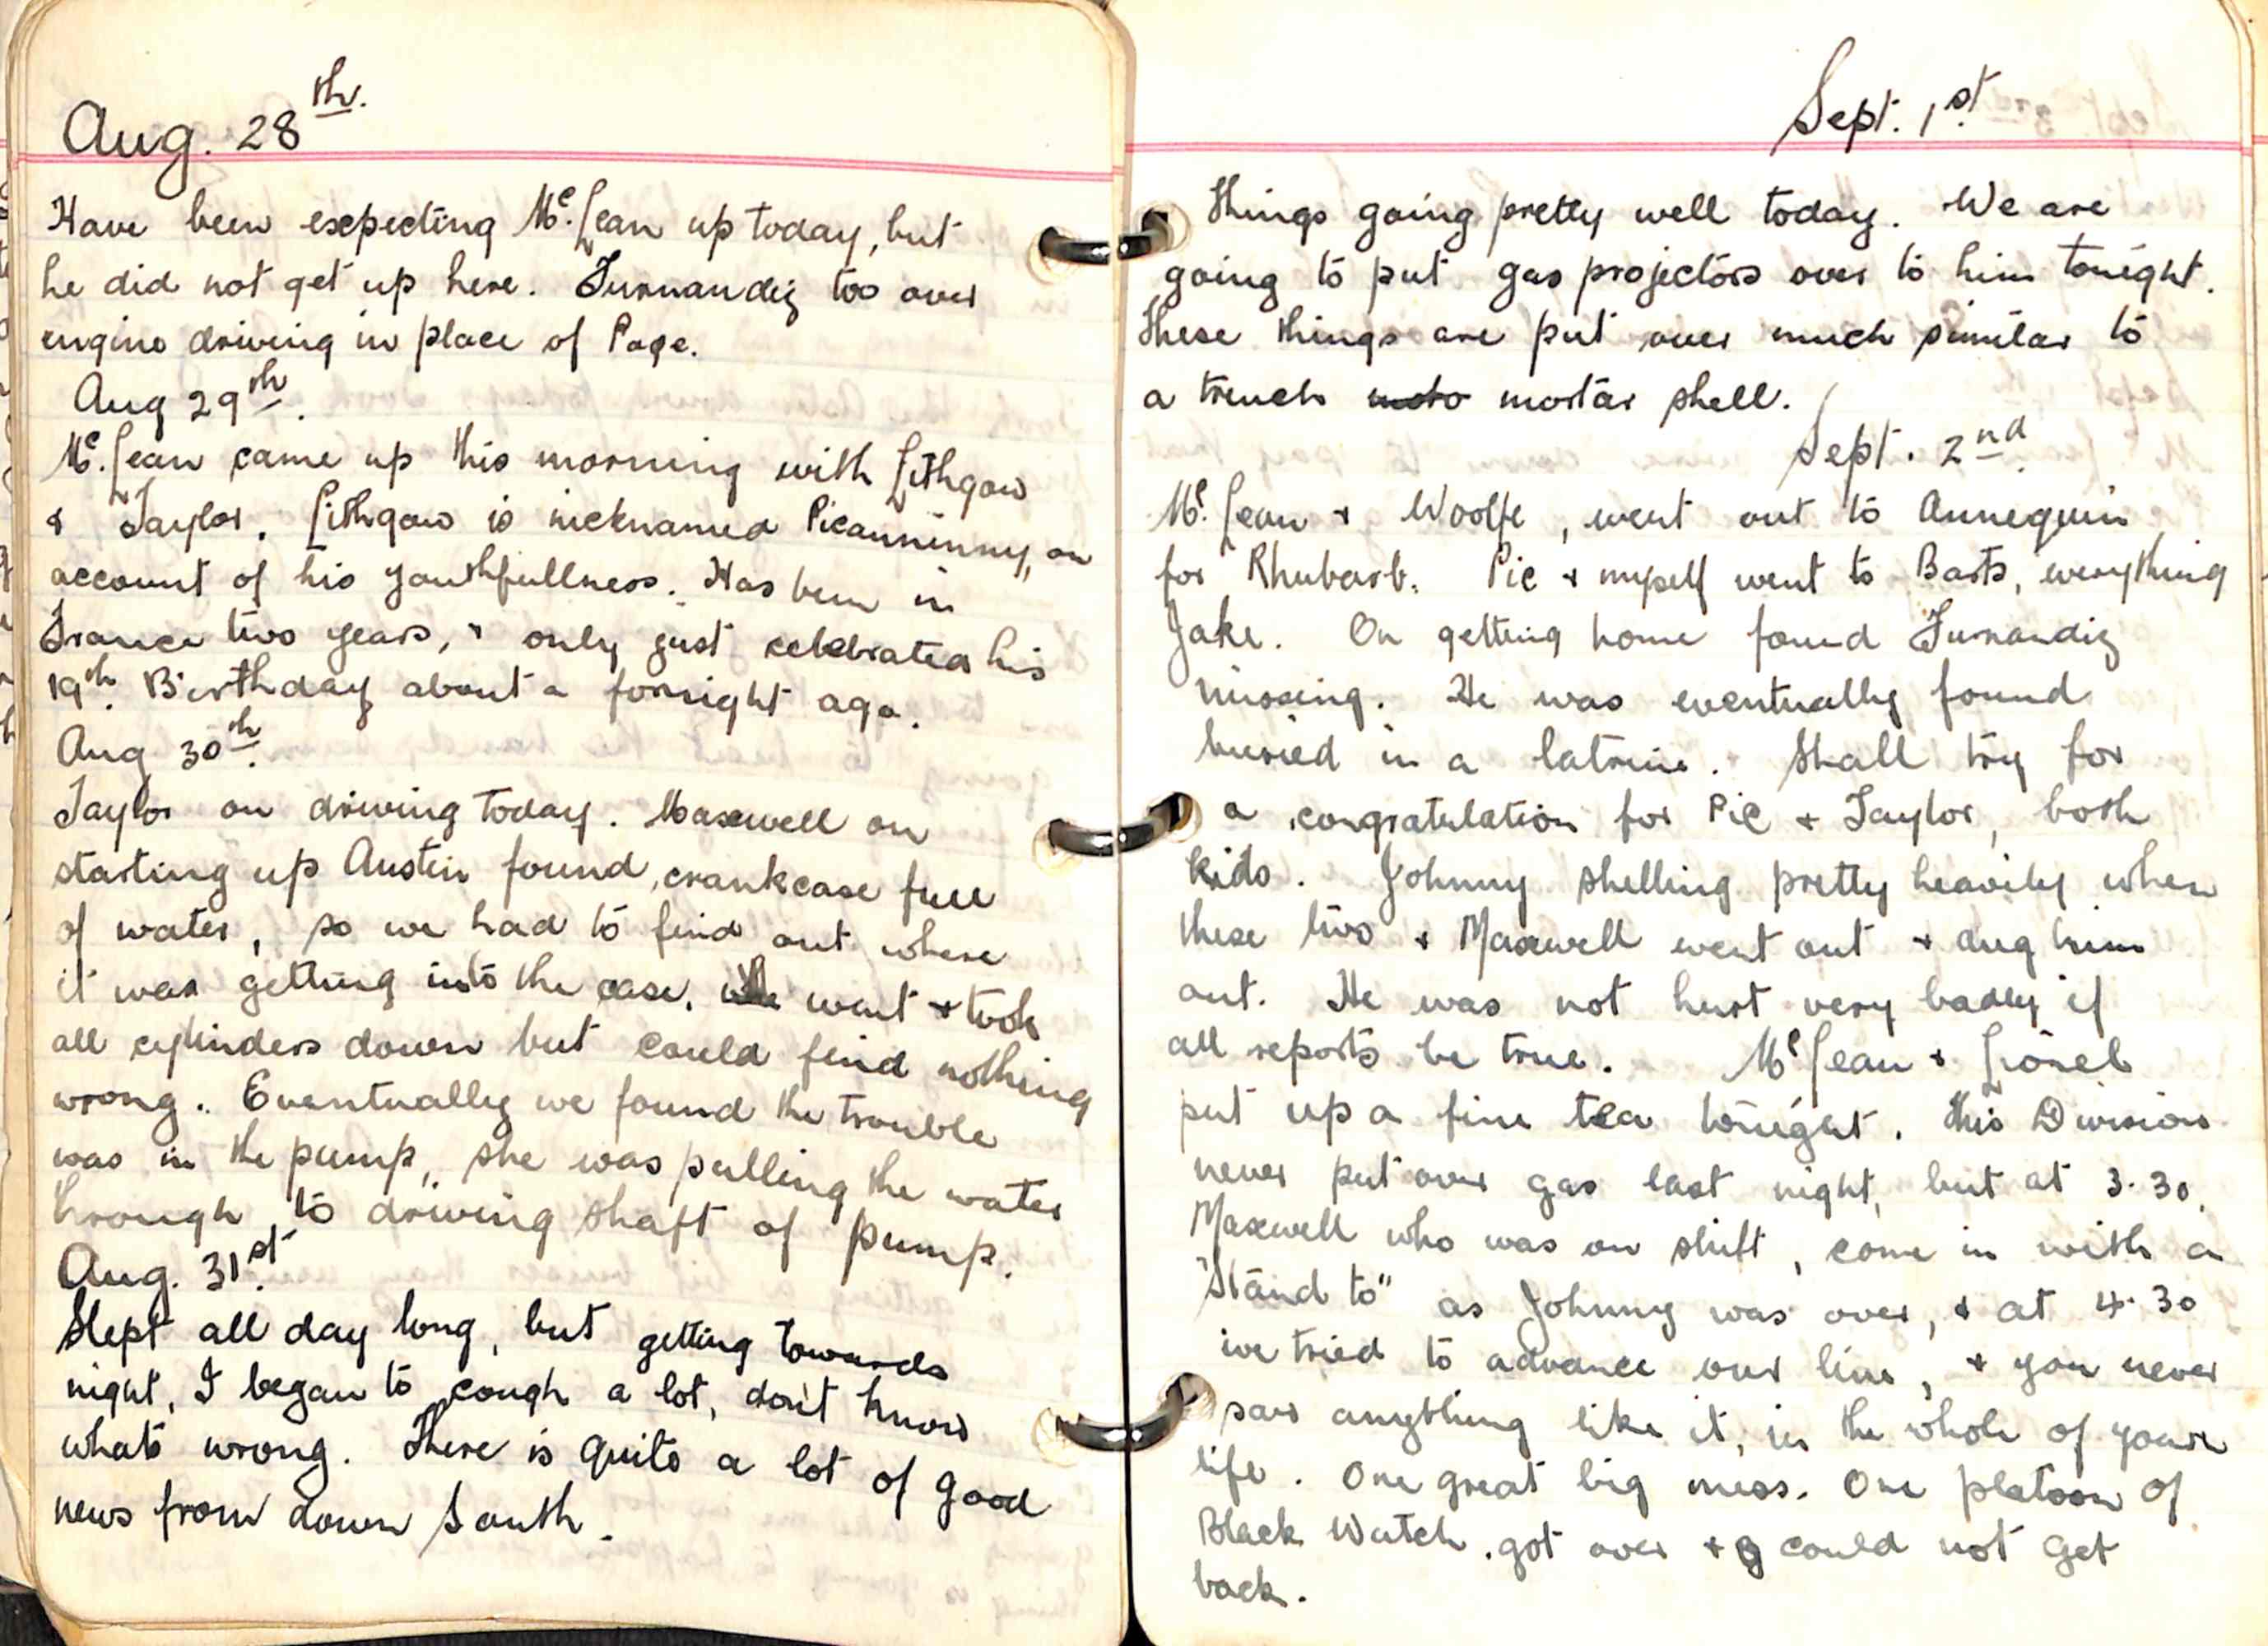 Aug. 28th.
Have been expecting Mc. Lean up today, but
he did not get up here. Furnandiz too over
engine driving in place of Page.
Aug 29th.
Mc. Lean came up this morning with Lithgow
& Taylor. Lithgow is nicknamed Picanninny, on
account of his youthfullness. Has been in
France two years, & only just celebrated his
19th. Birthday about a fornight ago.
Aug 30th.
Taylor on driving today. Maxwell on
starting up Austin found, crankcase full
of water, so we had to find out where
it was getting into the case. We went & took
all cylinders down but could find nothing
wrong. Eventually we found the trouble
was in the pump, she was pulling the water
through to driving shaft of pump.
Aug. 31st.
Slept all day long, but getting towards
night, I began to cough a lot, don't know
whats wrong. There is quite a lot of good
news from down South.
Sept. 1st.
Things going pretty well today. We are
going to put gas projectors over to him tonight.
These things are put over much similar to
a trench moto mortar shell.
Sept. 2nd.
Mc. Lean & Woolfe, went out to Annequin
for Rhubarb. Pic & myself went to Barts, everything
Jake. On getting home found Furnandiz
missing. He was eventually found
buried in a latrine. Shall try for
a congratulation for Pic & Taylor, both
kids. Johnny shelling pretty heavily when
these two & Maxwell went out & dug him
out. He was not hurt very badly if
all reports be true. Mc Lean & Lionel
put up a fine tea tonight. This Division
never put over gas last night, but at 3.30.
Maxwell who was on shift, come in with a
"Stand to" as Johnny was over, & at 4.30
we tried to advance our line, & you never
saw anything like it, in the whole of your
life. One great big mess. One platoon of
Black Watch got over & could not get
back.